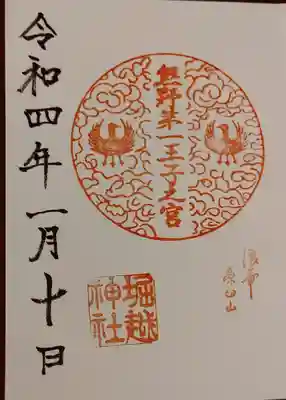 熊野第一王子之宮
浪華
堀越
神社
令和四年一月十日